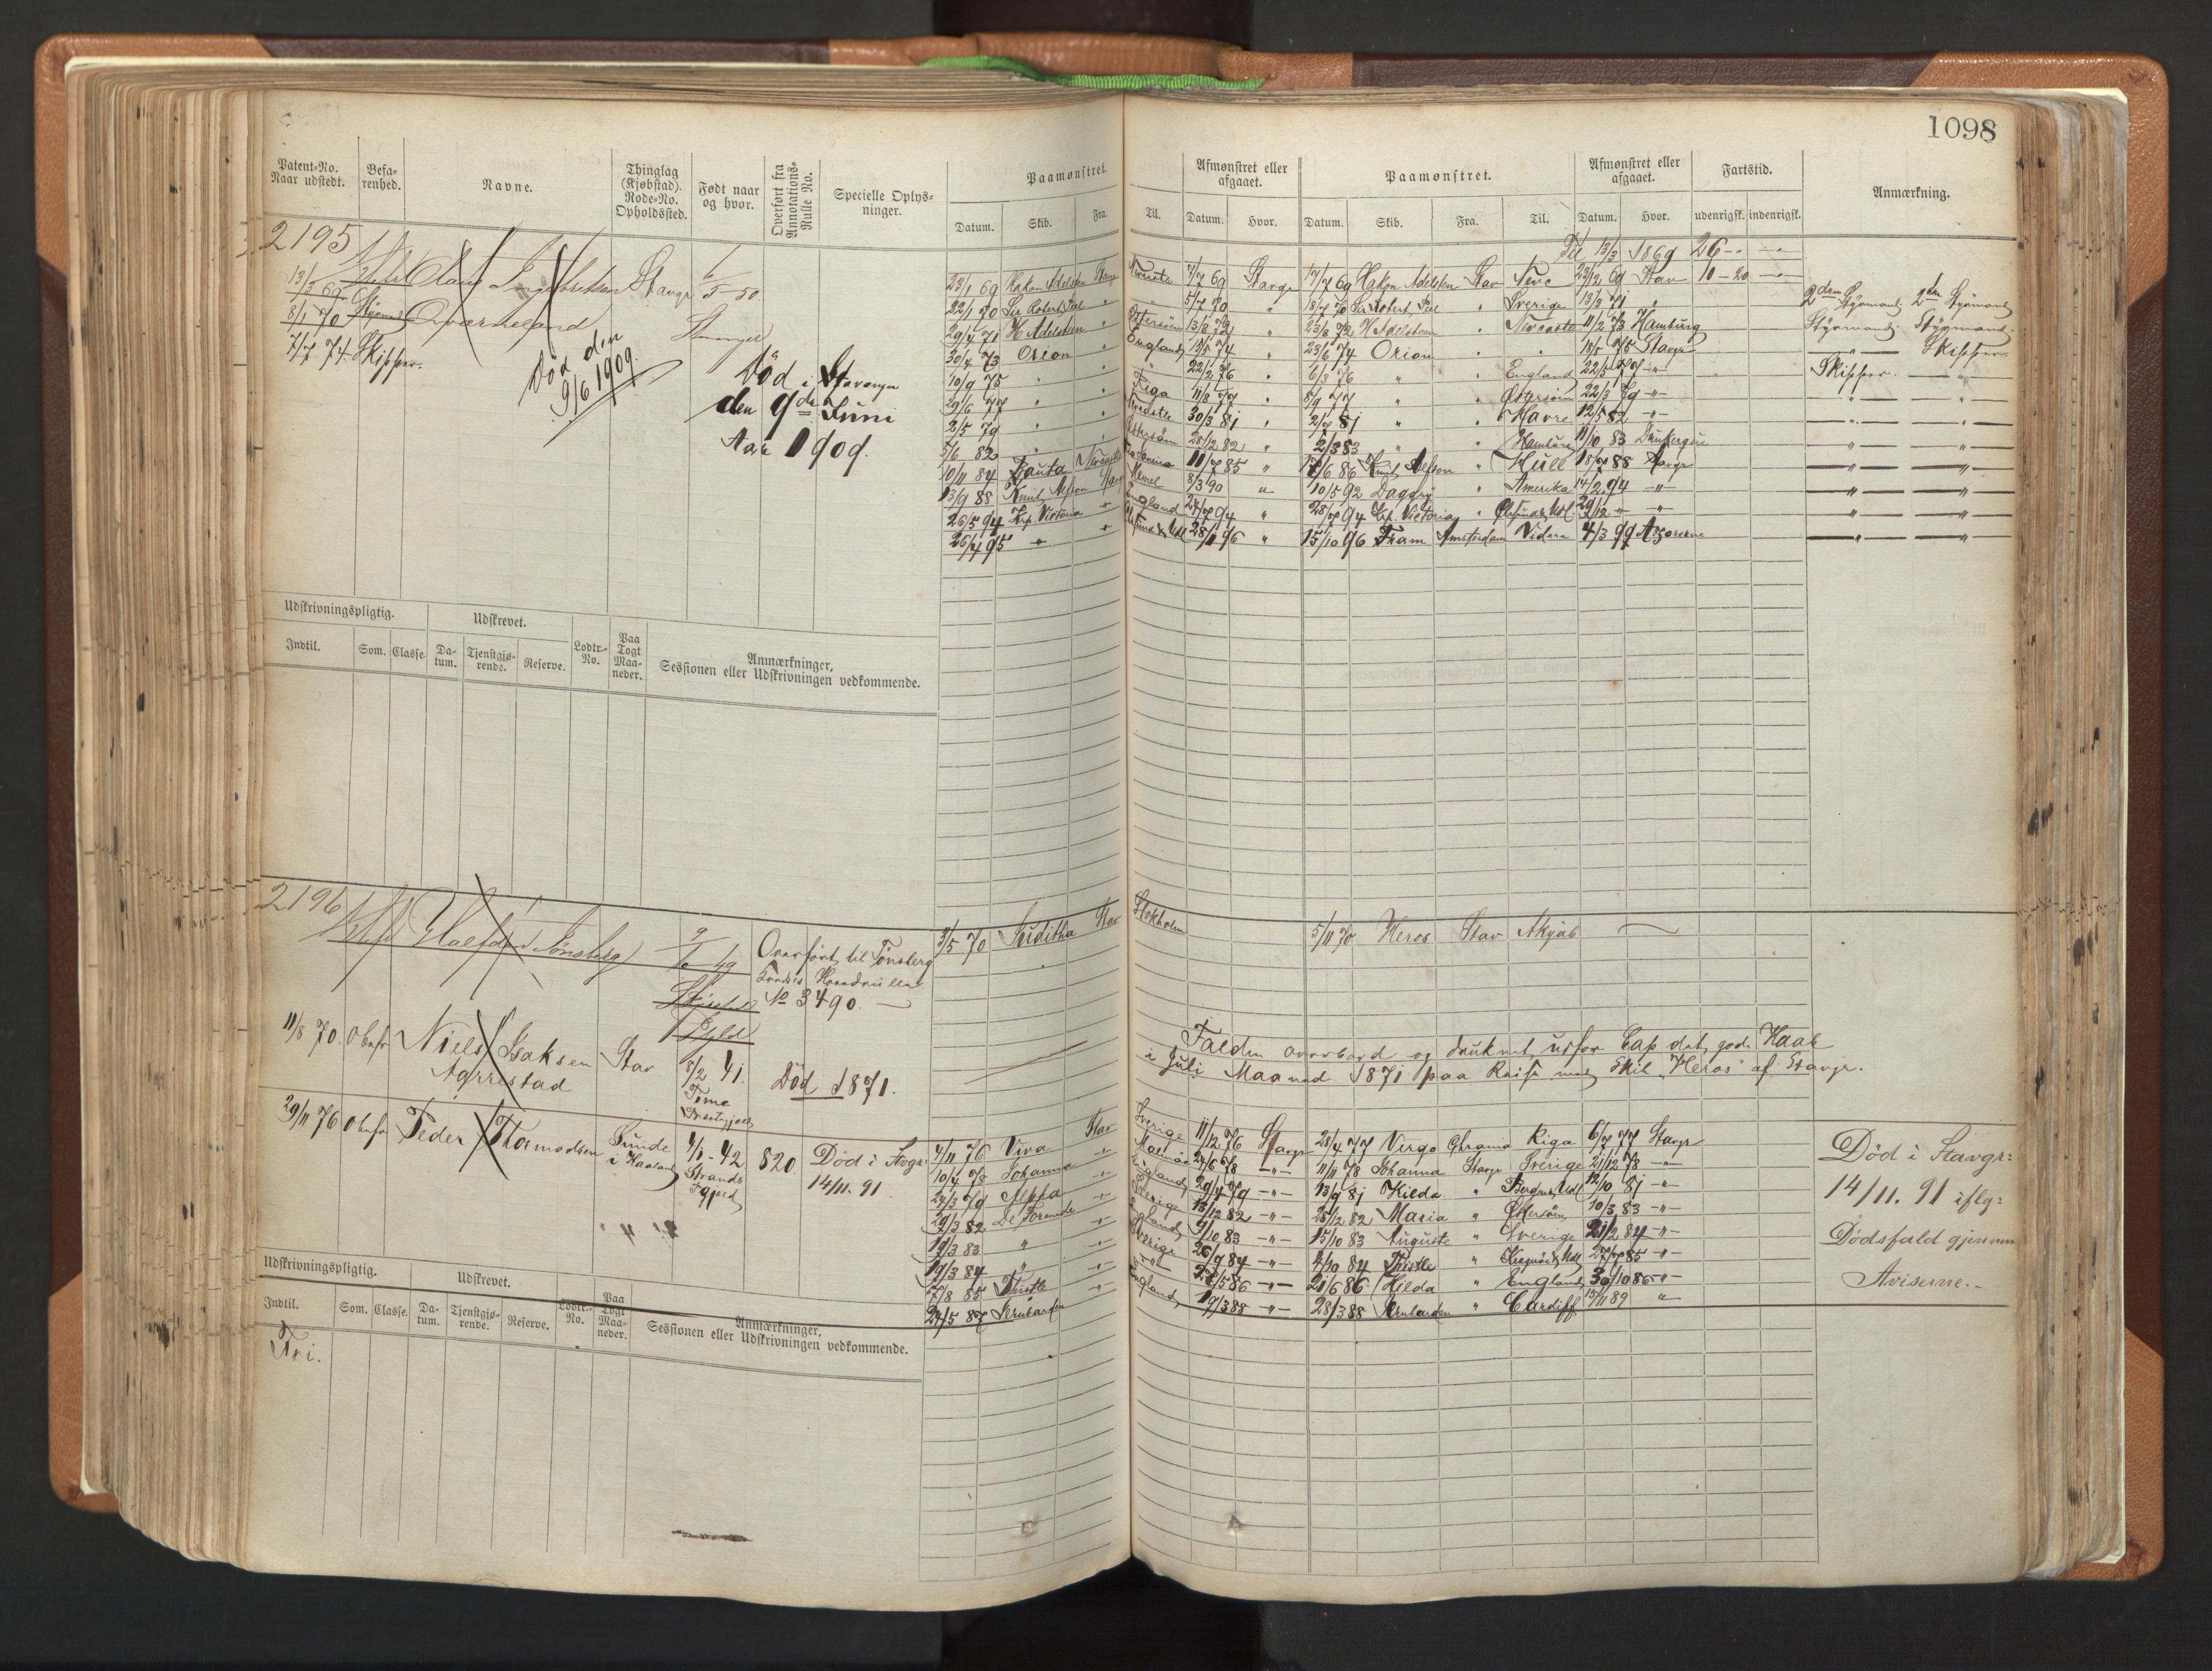 1098
Patent-No. Naar udstedt. Befarenhed. Navne. Thinglag (Kjøbstad). Rode-No. Opholdssted. Født naar og hvor. Overført fra Annotations-Rulle No. Specielle Oplysninger. Paamønstret. Afmønstret eller afgaaet. Paamønstret. Afmønstret eller afgaaet. Fartstid. Anmærkning.
Datum. Skib. Fra. Til. Datum. Hvor. Datum. Skib. Fra. Til. Datum. Hvor. udenrigsk. indenrigsk.
2195
Til 13/3 1869 26
13/3 69 Olaus Stavgr 6/5-50
8/1 70 Qværneland Stavanger
7/7 74 Skipper.
Død den 9/6 1909
Død i Stavanger
den 9de Juni
Aar 1909.
23/1 69 Hakon Adelsten Stavgr 7/7 69 Stavgr 17/7 69 Hakon Adelsten Stav Newc 23/12 69 Stav 10-20
22/1 70 Sir Robert Peel " " 5/7 70 " 18/7 70 Sir Robert Peel " Sverige 13/3 71 " 2den Styrmand 2den Styrmand
29/4 71 H Adelsteen " Østersøen 13/8 72 " 23/8 72 H Adelsteen " Newcastle 11/2 73 Hamburg Styrmand. Styrmand.
30/4 73 Orion " England 19/5 74 " 23/6 74 Orion " " 18/5 75 Stavgr " Skipper
10/9 75 " " " 22/2 76 " 6/3 76 " " England 22/5 77 " Skipper. "
29/6 77 " " Riga 11/8 77 " 8/9 77 " " Østersøen 22/3 79 " " "
2/5 79 " " Newcastle 30/3 81 " 2/7 81 " " Havre 12/5 82 " " "
5/6 82 " " Østersøen 28/12 82 " 2/3 83 " " Hamburg 11/10 83 Dünkerque " "
10/11 84 Zauta Newcastle 11/7 85 " 17/6 86 Knud Alfson " Hull 18/7 88 Stavgr " "
13/9 88 Knud Alfson Stavg Memel 8/3 90 " 10/5 92 Daggry " Amerika 14/2 94 " " "
26/5 94 Krp. Victoria " England 24/7 94 " 28/7 94 Krp. Victoria " 29/12 " " " "
26/4 95 " " 28/1 96 " 15/10 96 Fram Amsterdam 4/3 99 Azorerne " "
Udskrivningspligtig. Udskrevet. Lodtr.-No. Paa Togt Maaneder. Anmærkninger, Sessionen eller Udskrivningen vedkommende.
Indtil. Som. Classe. Datum. Tjenstgjørende. Reserve.
2196
Halfdan Tønsberg 9/10 49 Overført til Tønsberg
Hovedrulle
No 3490.
3/5 70 Juditha Stav Stokholm 5/11 70 Heros Stav Akjab
11/8 70. Obefr Niels Isaksen Stav 8/2 41. Død 1871.
Agrestad Time
Falden overbord og druknet udfor Cap det gode Haab
i Juli Maaned 1871 paa Reise med Skib "Heros" af Stavgr.
29/11 76 Obefr Peder Tormodsen Sunde i Haaland 4/1-42 Strands Pgjeld 820. Død i Stvgr: 14/11. 91.
4/11 76 Viva Stav Sverige 11/12 76 Stavgr 28/4 77 Virgo Grama Riga 6/7 77 Stavgr
10/4 78 Johanna " 24/6 78 " 11/11 78 Johanna Stavgr Sverige 21/12 78 "
24/3 79 Alpha " England 29/4 79 " 13/9 81 Hilda " 12/10 81 "
29/3 82 " Sverige 18/12 82 " 28/12 82 Maria " Østersøen 10/3 83 "
19/3 83 " " England 9/10 83 " 15/10 83 Auguste " Sverige 21/2 84 "
19/3 84 " " Sverige 26/9 84 " 4/10 84 Thistle " 27/7 85 "
7/8 85 Thistle " " 28/5 86 " 21/6 86 Hilda " England 30/10 86 "
24/5 87 England 19/3 88 " 28/3 88 " Cardiff 15/11 89 "
Død i Stavgr:
14/11. 91 iflg:
Dødsfald gjennem
Aviserne.
Udskrivningspligtig. Udskrevet. Lodtr.-No. Paa Togt Maaneder. Anmærkninger, Sessionen eller Udskrivningen vedkommende.
Indtil. Som. Classe. Datum. Tjenstgjørende. Reserve.
Fri.